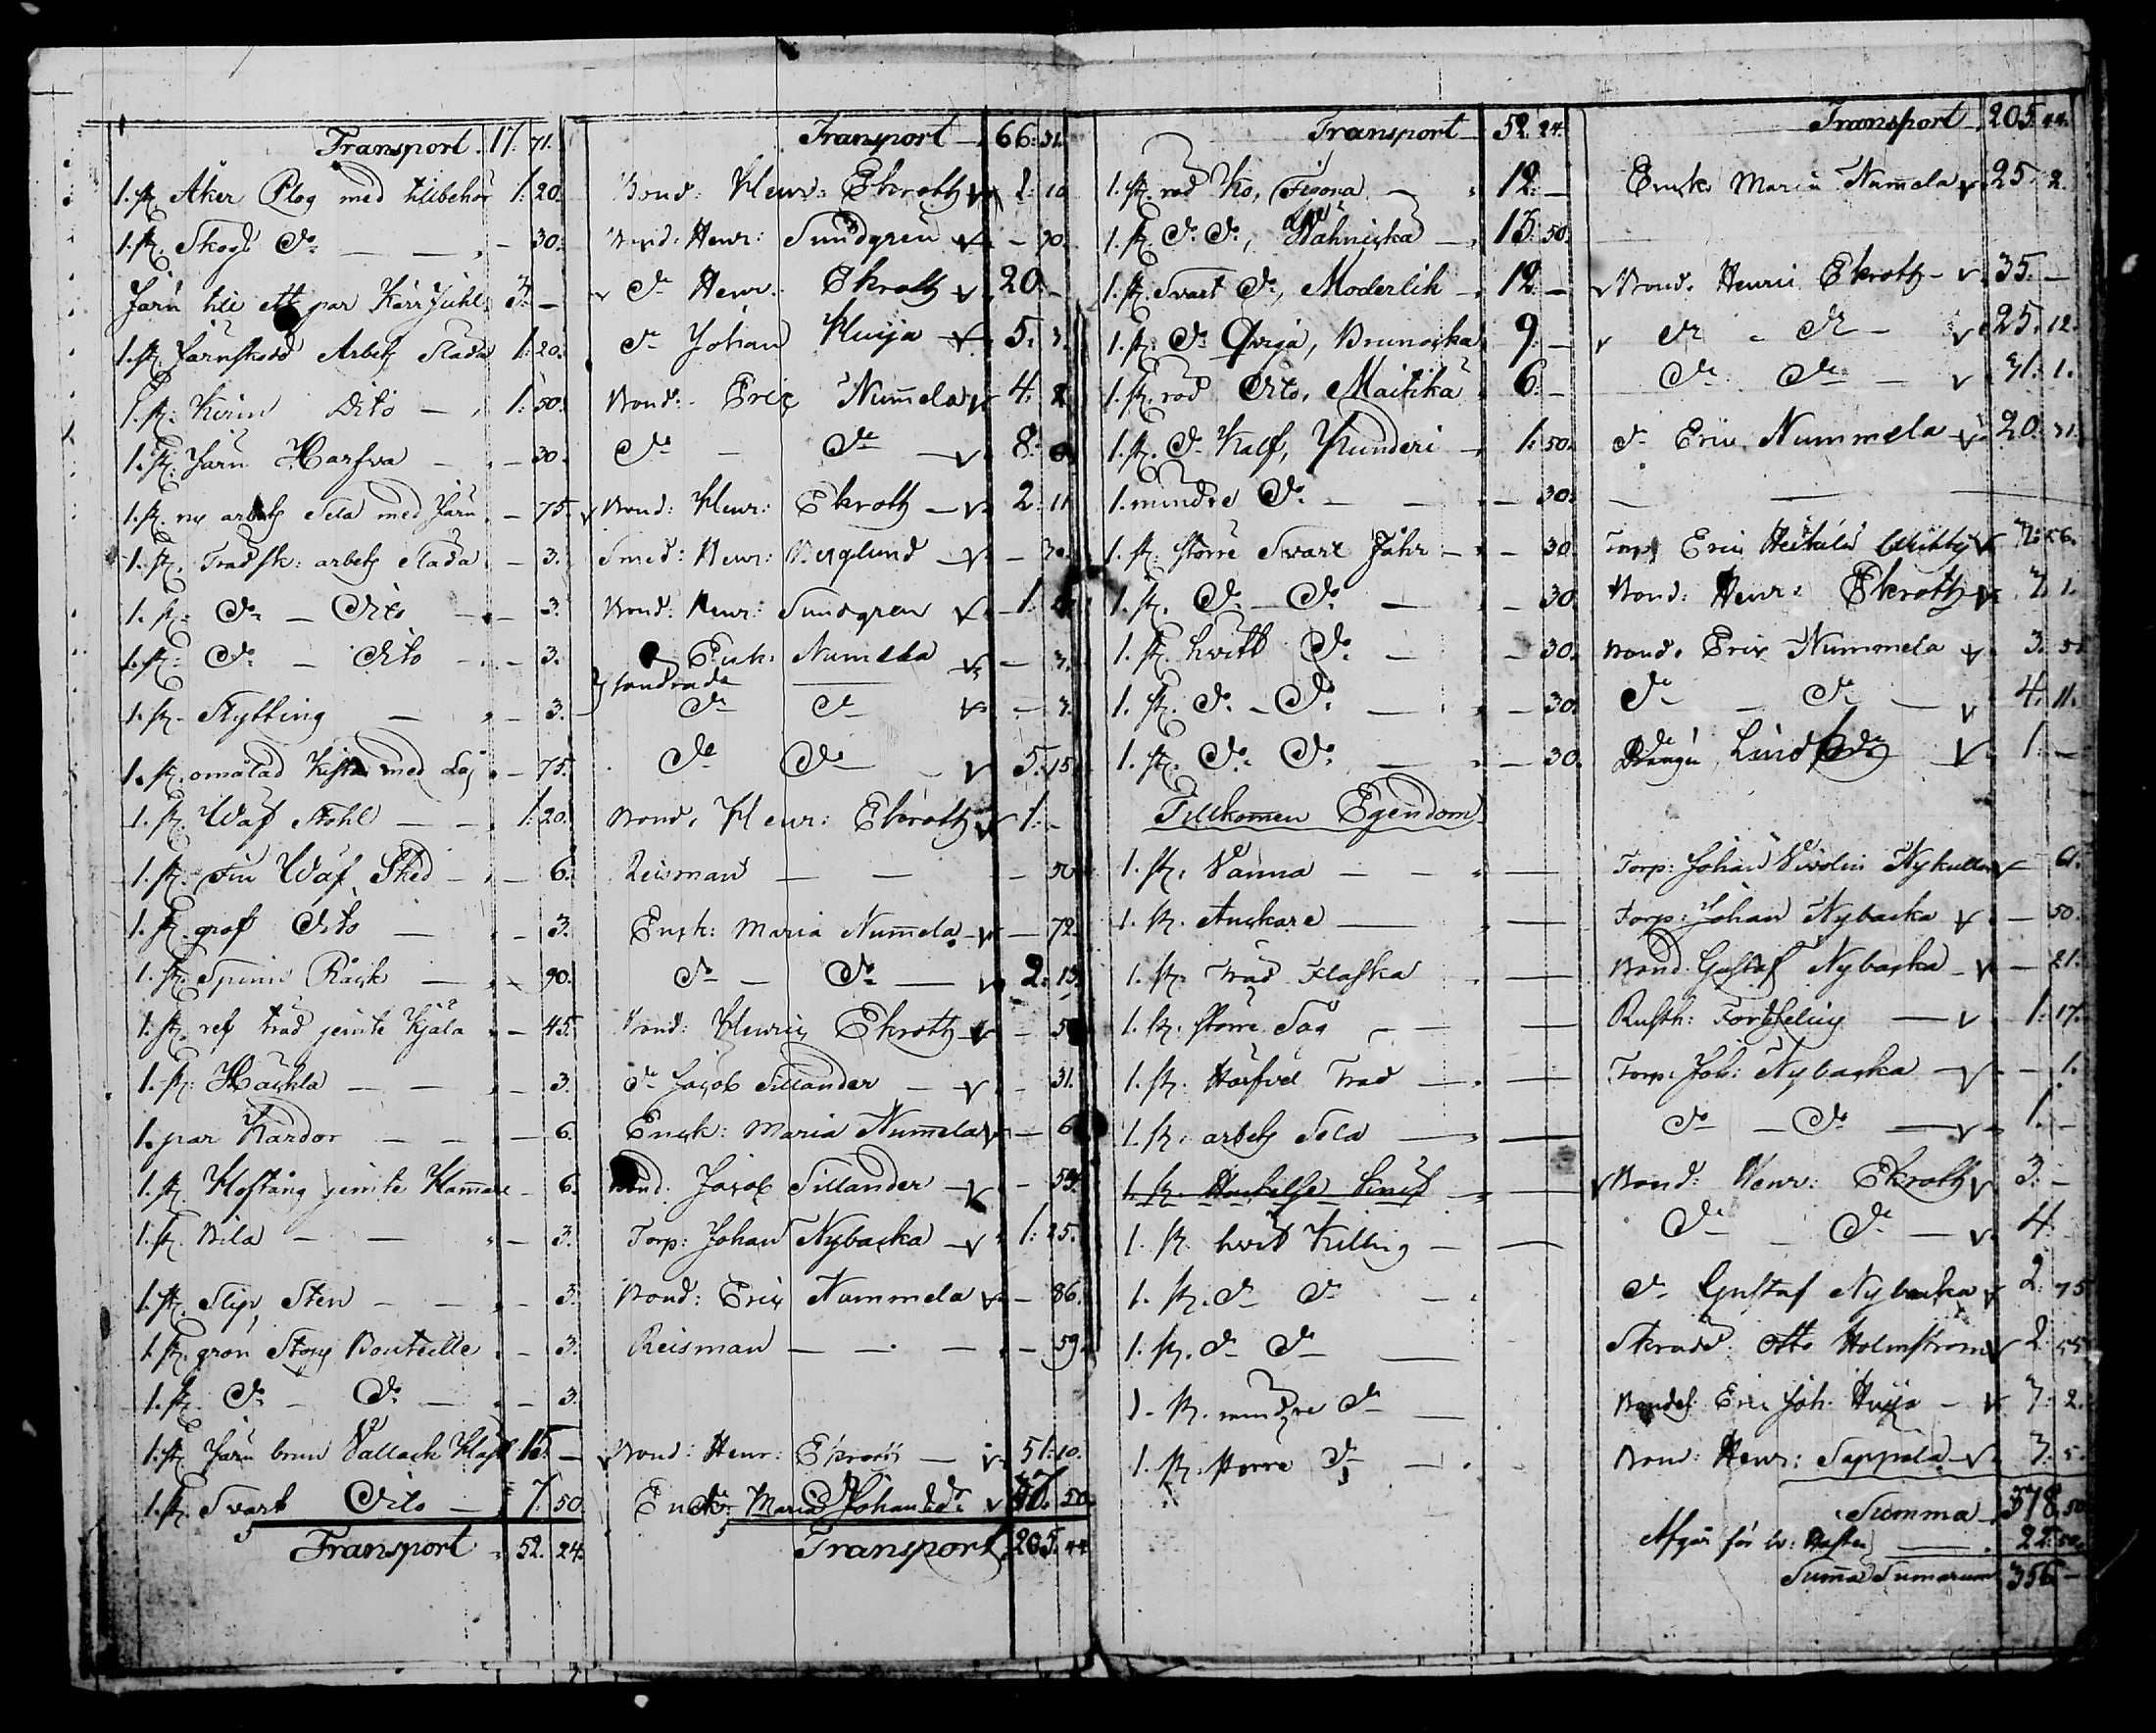 Transport. 17. 71.
1. st. Åker Plog med tilbehör 1. 20.
1. st. Skogs Do — — - 30.
Järn till ett par Kärr Juhl 3. —
1. st. Järnskodd Arbets Släda 1. 20.
1. st. Körin Dito — 1. 50.
1. st. Järn Harfva — - 30.
1. st. ny arbets Sela med Järn - 75.
1. st. Trädsk: arbets Släda - 3.
1. st. Do — Dito - 3.
1. st. Do — Dito - 3.
1. st. Stytting — - 3.
1. st. omålad Kista med Lås - 75.
1. st. Wäf Stohl — — 1. 20.
1. st. Fin Wäf Sked — - 6.
1. st. grof Dito — - 3.
1. st. Spinn Råck — - 90.
1. st. ref träd jemte Kjäla - 45.
1. st. Häckla — — - 3.
1. par Kardor — — - 6.
1. st. Hoftång jemte Hammare - 6.
1. st. Bila — — - 3.
1. st. Slip Sten — — - 3.
1. st. grön Stop Bouteille - 3.
1. st. Do — Do — - 3.
1. st. Järn brun Vallack Häst 15. —
1. st. Svart Dito — 7. 50.
Transport 52. 24.
Transport — 66. 31.
Bond: Henr: Ekroth 2. 10
Bond: Henr: Sundgren — 90.
Do Henr: Ekroth 20. —
Do Johan Huija 5. 3.
Bond: Eric Nummela 4. 2
Do — Do — 8.
Bond: Henr: Ekroth — 2. 11
Smed: Henr: Berglund — 30.
Bond: Henr: Sundgren 1.
Enk: Numela — 3.
Do Do — 3.
Do Do — 5. 15.
Bond: Henr: Ekroth 1. —
Reisman — — - 50
Enk: Maria Numela — 72.
Do — Do — 2. 13.
Bond: Henric Ekroth — 5
Do Jacob Sillander — - 31.
Enk: Maria Numela — 6
Bond: Jacob Sillander — - 54.
Torp: Johan Nybacka — 1. 25.
Bond: Eric Nummela — 86.
Reisman — — — - 59.
Bond: Henr: Ekroth — 51. 10.
Enk: Maria Johans Dr 50.
Transport 205. 44
Transport — 52. 24.
1. st. röd Ko, Figona — 12. —
1. st. Do Do, Wähniska — 13. 50.
1. st. Svart Do, Moderlik — 12. —
1. st. Do Qviga, Brunicka 9. —
1. st. röd Dito, Maitika 6. —
1. st. Do Kalf, Kunderi — 1. 50.
1. mindre Do — — - 30.
1. st. större Svart Fåhr — - 30
1. st. Do — Do — - 30
1. st. hvitt Do — - 30.
1. st. Do — Do — - 30.
1. st. Do Do — - 30.
Tillkommen Egendom
1. st. Vanna — — —
1. st. Anckare — —
1. st. Träd Flaska —
1. st. större Såg — —
1. st. Harfvel Träd — —
1. st. arbets Sela — —
1. st. hvit Killing — —
1. st. Do Do —
1. st. Do Do —
1. st. mindre Do —
1. st. större Do —
Transport — 205. 44.
Enk: Maria Numela 25. 2.
Bond: Henric Ekroth — 35. —
Do — Do — 25. 12.
Do Do — 31. 1.
Do Eric Nummela 20. 31.
Torp: Eric Heikkilä 2. 56.
Bond: Henr: Ekroth 3. 1.
Bond: Eric Nummela 3. 5
Do — Do — 4. 11.
Drängen Lind 1. —
Torp: Johan Nykulla — 61.
Torp: Johan Nybacka — 50.
Bond: Gustaf Nybacka — 21.
Rusth: Fordelius — 1. 17.
Torp: Joh: Nybacka — - 1.
Do — Do — 1. —
Bond: Henr: Ekroth 3. —
Do — Do — 4.
Do Gustaf Nybacka 2. 75
Skradd. Otto Holmström 2. 55
Bondes: Eric Joh. Huija — 3. 2.
Bond: Henr: Sappala — 3. 5.
Summa — 378. 50
Afgår för Hästen — 22. 50.
Summa Sumarum 356. —